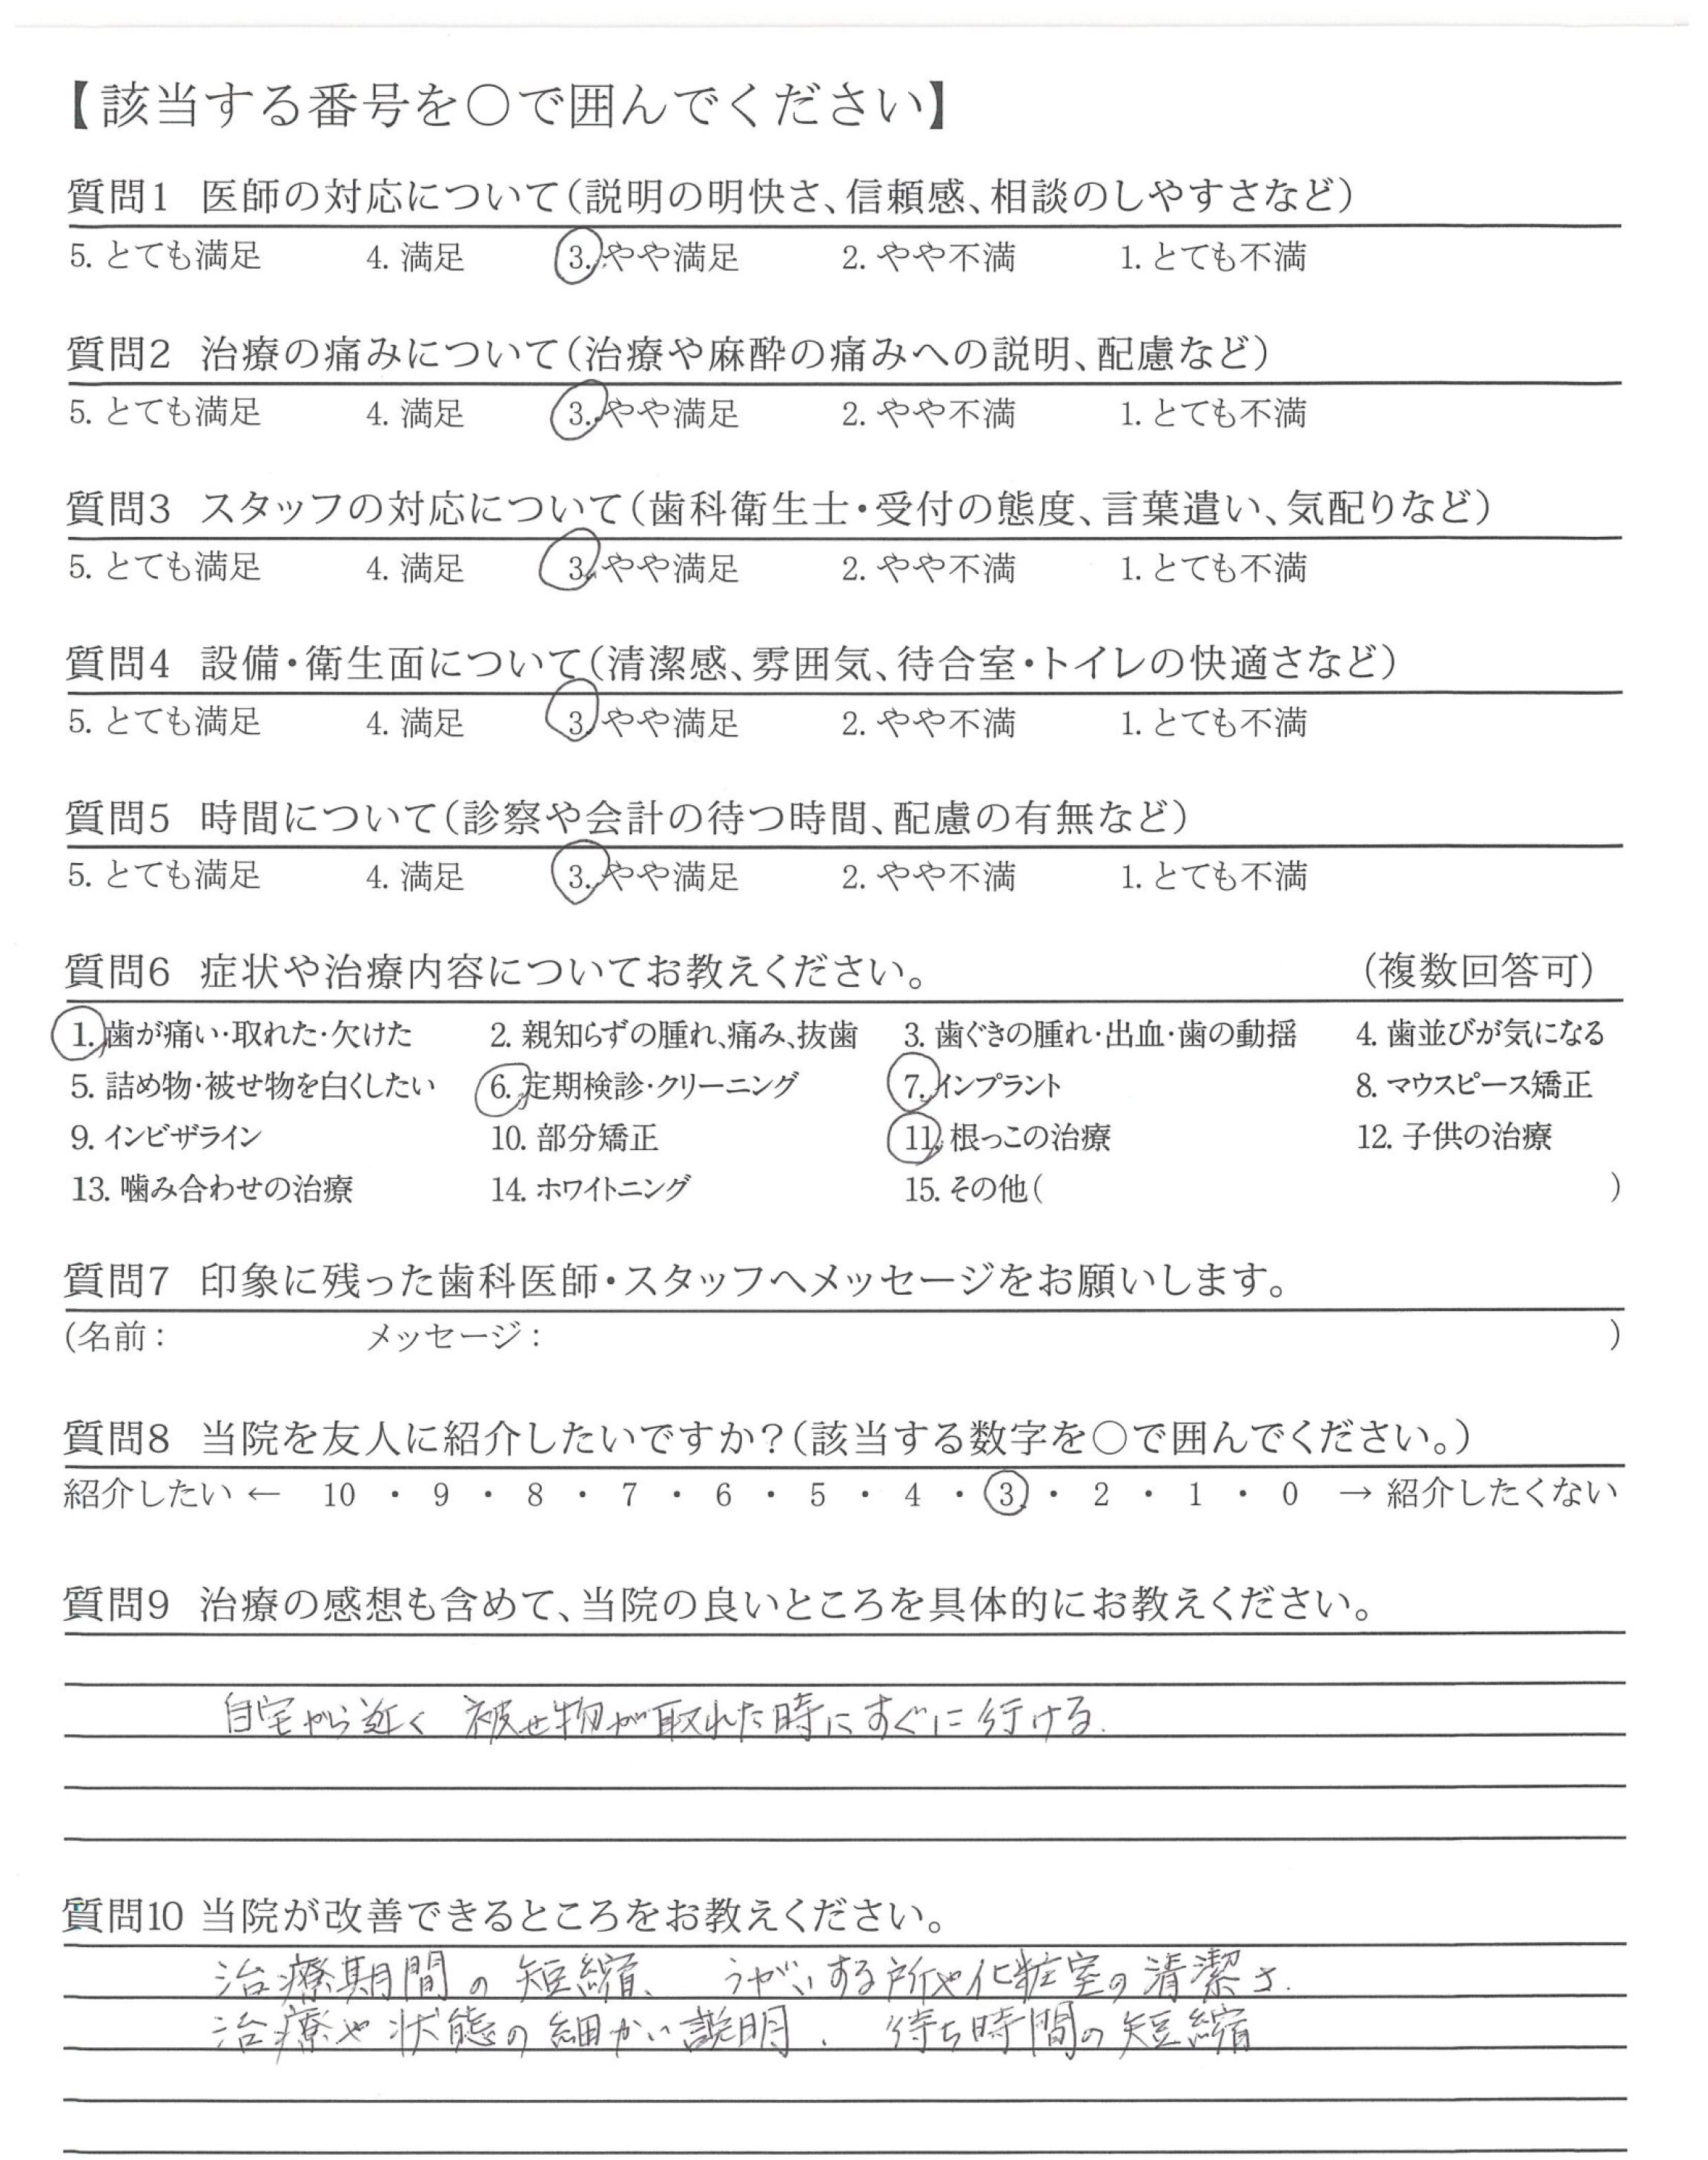 【該当する番号を○で囲んでください】
質問1 医師の対応について(説明の明快さ、信頼感、相談のしやすさなど)
5. とても満足 4. 満足 3. やや満足 2. やや不満 1. とても不満
質問2 治療の痛みについて(治療や麻酔の痛みへの説明、配慮など)
5. とても満足 4. 満足 3. やや満足 2. やや不満 1. とても不満
質問3 スタッフの対応について(歯科衛生士・受付の態度、言葉遣い、気配りなど)
5. とても満足 4. 満足 3. やや満足 2. やや不満 1. とても不満
質問4 設備・衛生面について(清潔感、雰囲気、待合室・トイレの快適さなど)
5. とても満足 4. 満足 3. やや満足 2. やや不満 1. とても不満
質問5 時間について(診察や会計の待つ時間、配慮の有無など)
5. とても満足 4. 満足 3. やや満足 2. やや不満 1. とても不満
質問6 症状や治療内容についてお教えください。 (複数回答可)
1. 歯が痛い・取れた・欠けた 2. 親知らずの腫れ、痛み、抜歯 3. 歯ぐきの腫れ・出血・歯の動揺 4. 歯並びが気になる
5. 詰め物・被せ物を白くしたい 6. 定期検診・クリーニング 7. インプラント 8. マウスピース矯正
9. インビザライン 10. 部分矯正 11. 根っこの治療 12. 子供の治療
13. 噛み合わせの治療 14. ホワイトニング 15. その他( )
質問7 印象に残った歯科医師・スタッフへメッセージをお願いします。
(名前: メッセージ: )
質問8 当院を友人に紹介したいですか?(該当する数字を○で囲んでください。)
紹介したい ← 10 ・ 9 ・ 8 ・ 7 ・ 6 ・ 5 ・ 4 ・ 3 ・ 2 ・ 1 ・ 0 → 紹介したくない
質問9 治療の感想も含めて、当院の良いところを具体的にお教えください。
自宅から近く 被せ物が取れた時にすぐに行ける.
質問10 当院が改善できるところをお教えください。
治療期間の短縮、 うがいする所や化粧室の清潔さ.
治療や状態の細かい説明. 待ち時間の短縮